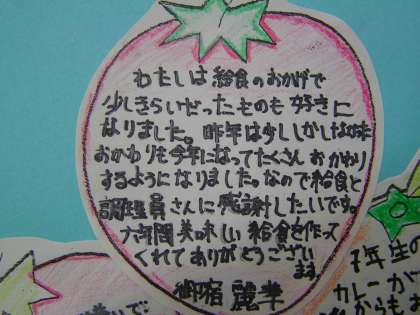 わたしは給食のおかげで
少しきらいだったものも好きに
なりました。昨年は少ししかしなかった
おかわりも今年になってたくさんおかわり
するようになりました。なので給食と
調理員さんに感謝したいです。
六年間美味しい給食を作って
くれてありがとうござい
ます。
御宿 麗華
年生の
カレーが
からも